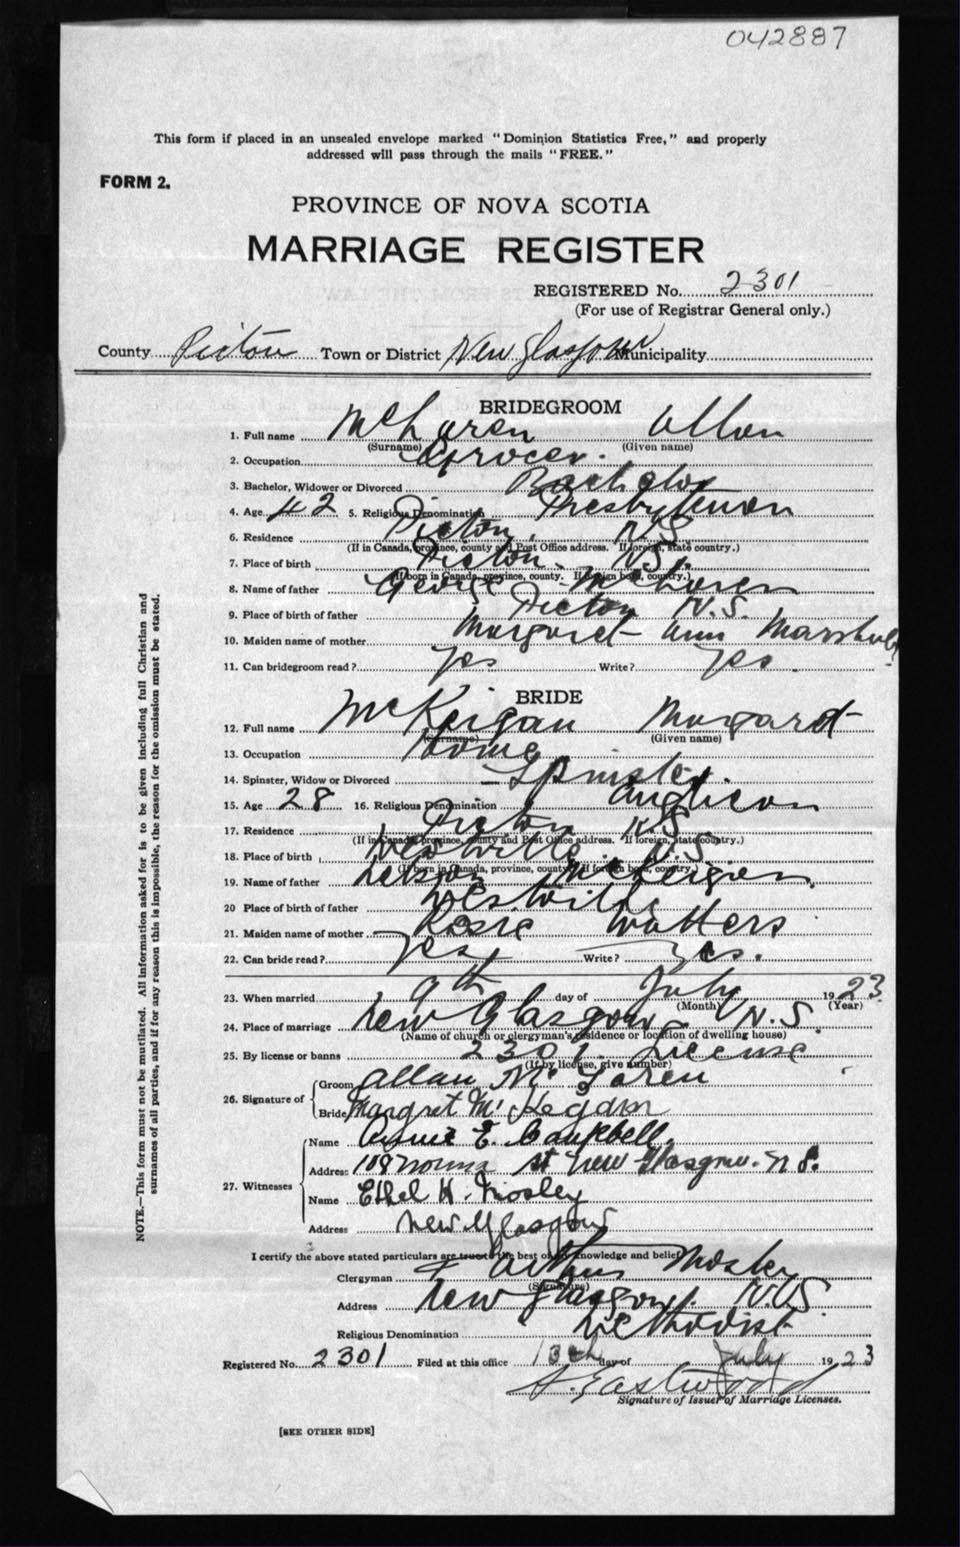 042887
This form if placed in an unsealed envelope marked "Dominion Statistics Free," and properly
addressed will pass through the mails "FREE."
FORM 2.
PROVINCE OF NOVA SCOTIA
MARRIAGE REGISTER
REGISTERED No. 2301
(For use of Registrar General only.)
County Pictou Town or District New Glasgow Municipality
BRIDEGROOM
1. Full name McLaren Allan
(Surname) (Given name)
2. Occupation Grocer.
3. Bachelor, Widower or Divorced Bachelor
4. Age 42 5. Religious Denomination Presbyterian
6. Residence Pictou, N.S.
(If in Canada, province, county and Post Office address. If foreign, state country.)
7. Place of birth Pictou. N.S.
(If born in Canada, province, county. If foreign born, country.)
8. Name of father George McLaren
9. Place of birth of father Pictou N.S.
10. Maiden name of mother Margaret Ann Marshall
11. Can bridegroom read? Yes Write? Yes.
BRIDE
12. Full name McKeigan Margaret
(Surname) (Given name)
13. Occupation Home
14. Spinster, Widow or Divorced Spinster.
15. Age 28 16. Religious Denomination Anglican
17. Residence Pictou N.S.
(If in Canada, province, county and Post Office address. If foreign, state country.)
18. Place of birth Westville. N.S.
(If born in Canada, province, county. If foreign born, country.)
19. Name of father McKeigan.
20 Place of birth of father Westville
21. Maiden name of mother Rosie Watters
22. Can bride read? Yes Write? Yes.
23. When married 9th day of July 1923
(Month) (Year)
24. Place of marriage New Glasgow N.S.
(Name of church or clergyman's residence or location of dwelling house)
25. By license or banns 2301. License
(If by license, give number)
26. Signature of Groom Allan McLaren
Bride Margret McKegan
27. Witnesses Name Annie E. Campbell.
Address 108 St New Glasgow. N S.
Name Ethel H. Mosley
Address New Glasgow
I certify the above stated particulars are true to the best of my knowledge and belief
Clergyman Arthur Mosley
(Signature)
Address New Glasgow. N.S.
Religious Denomination Methodist
Registered No. 2301 Filed at this office 13th day of July 1923
A. Eastwood
Signature of Issuer of Marriage Licenses.
[SEE OTHER SIDE]
NOTE.—This form must not be mutilated. All information asked for is to be given including full Christian and
surnames of all parties, and if for any reason this is impossible, the reason for the omission must be stated.